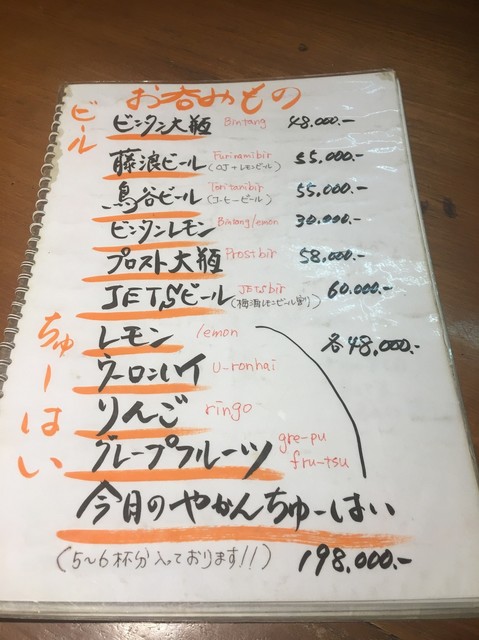 お呑みもの
ビール
ビンタン大瓶 Bintang 48.000.-
藤浪ビール Furinamibir (OJ+レモンビール) 55,000.-
鳥谷ビール Toritanibir (コーヒービール) 55,000.-
ビンタンレモン Bintang/emon 30.000.-
プロスト大瓶 Prostbir 58,000.-
JETSビール JETSbir (梅酒レモンビール割り) 60,000.-
ちゅーはい
レモン /emon 各48,000.-
ウーロンハイ U-ronhai
りんご ringo
グレープフルーツ gre-pu fru-tsu
今月のやかんちゅーはい
(5~6杯分入っております!!) 198,000.-